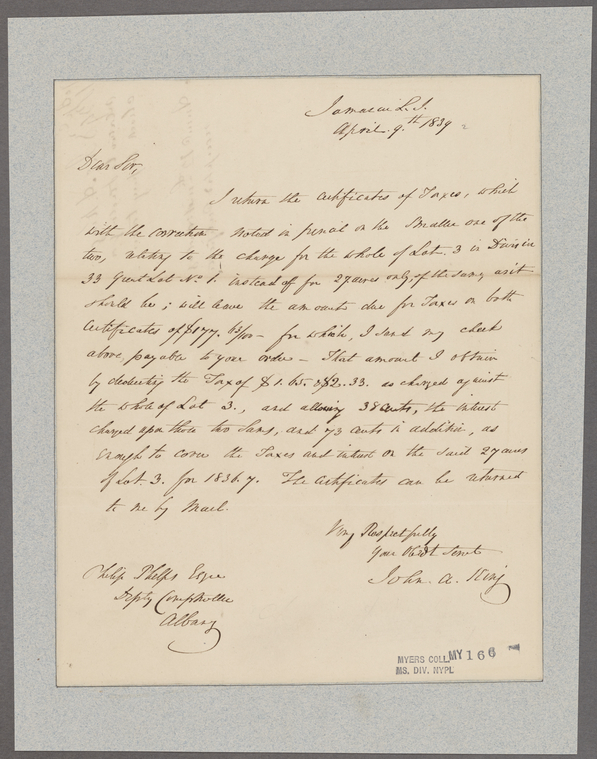 Jamaica L. I.
April. 9.th 1839
Dear Sir,
I return the Certificates of Taxes, which
with the correction noted in pencil on the smaller one of the
two, relating to the charge for the whole of Lot. 3 in Division
33 Great Lot No 1. instead of for 27 acres only, of the same, as it
should be; will leave the amounts due for Taxes on both
Certificates of $177. 63/100 - for which, I send my check
above, payable to your order - That amount I obtain
by deducting the Tax of $1.65. & $2.33. as charged against
the whole of Lot 3., and allowing 38 Cents, the interest
charged upon those two sums, and 73 cents in addition, as
enough to cover the Taxes and interest on the said 27 acres
of Lot. 3. for 1836. 7. The Certificates can be returned
to me by Mail.
Very Respectfully
Your Obdt Servt
John. A. King
Philip Phelps Esqre
Depty Comptroller
Albany
MYERS COLL MY 166
MS. DIV. NYPL